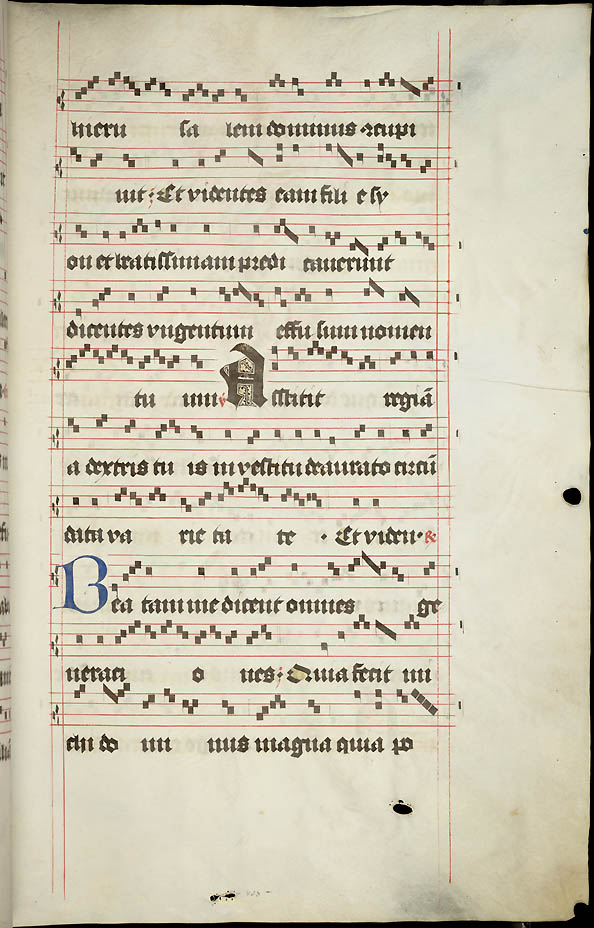 hieru sa lem dominus ꝯcupi
uit : Et videntes eam fili e sy
on et beatissimam predi cauerunt
dicentes vngentum effu sum nomen
tu um ℣ Assitit regiā
a dextris tu is in vestitu deaurato circū
data va rie ta te · Et viden · ℟
Bea tam me dicent omnes ge
neraci o nes : Quia fecit mi
chi do mi nus magna quia po